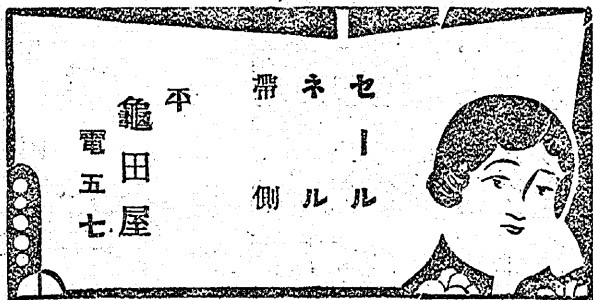 セール
ネル
帶側
平
龜田屋
電五七